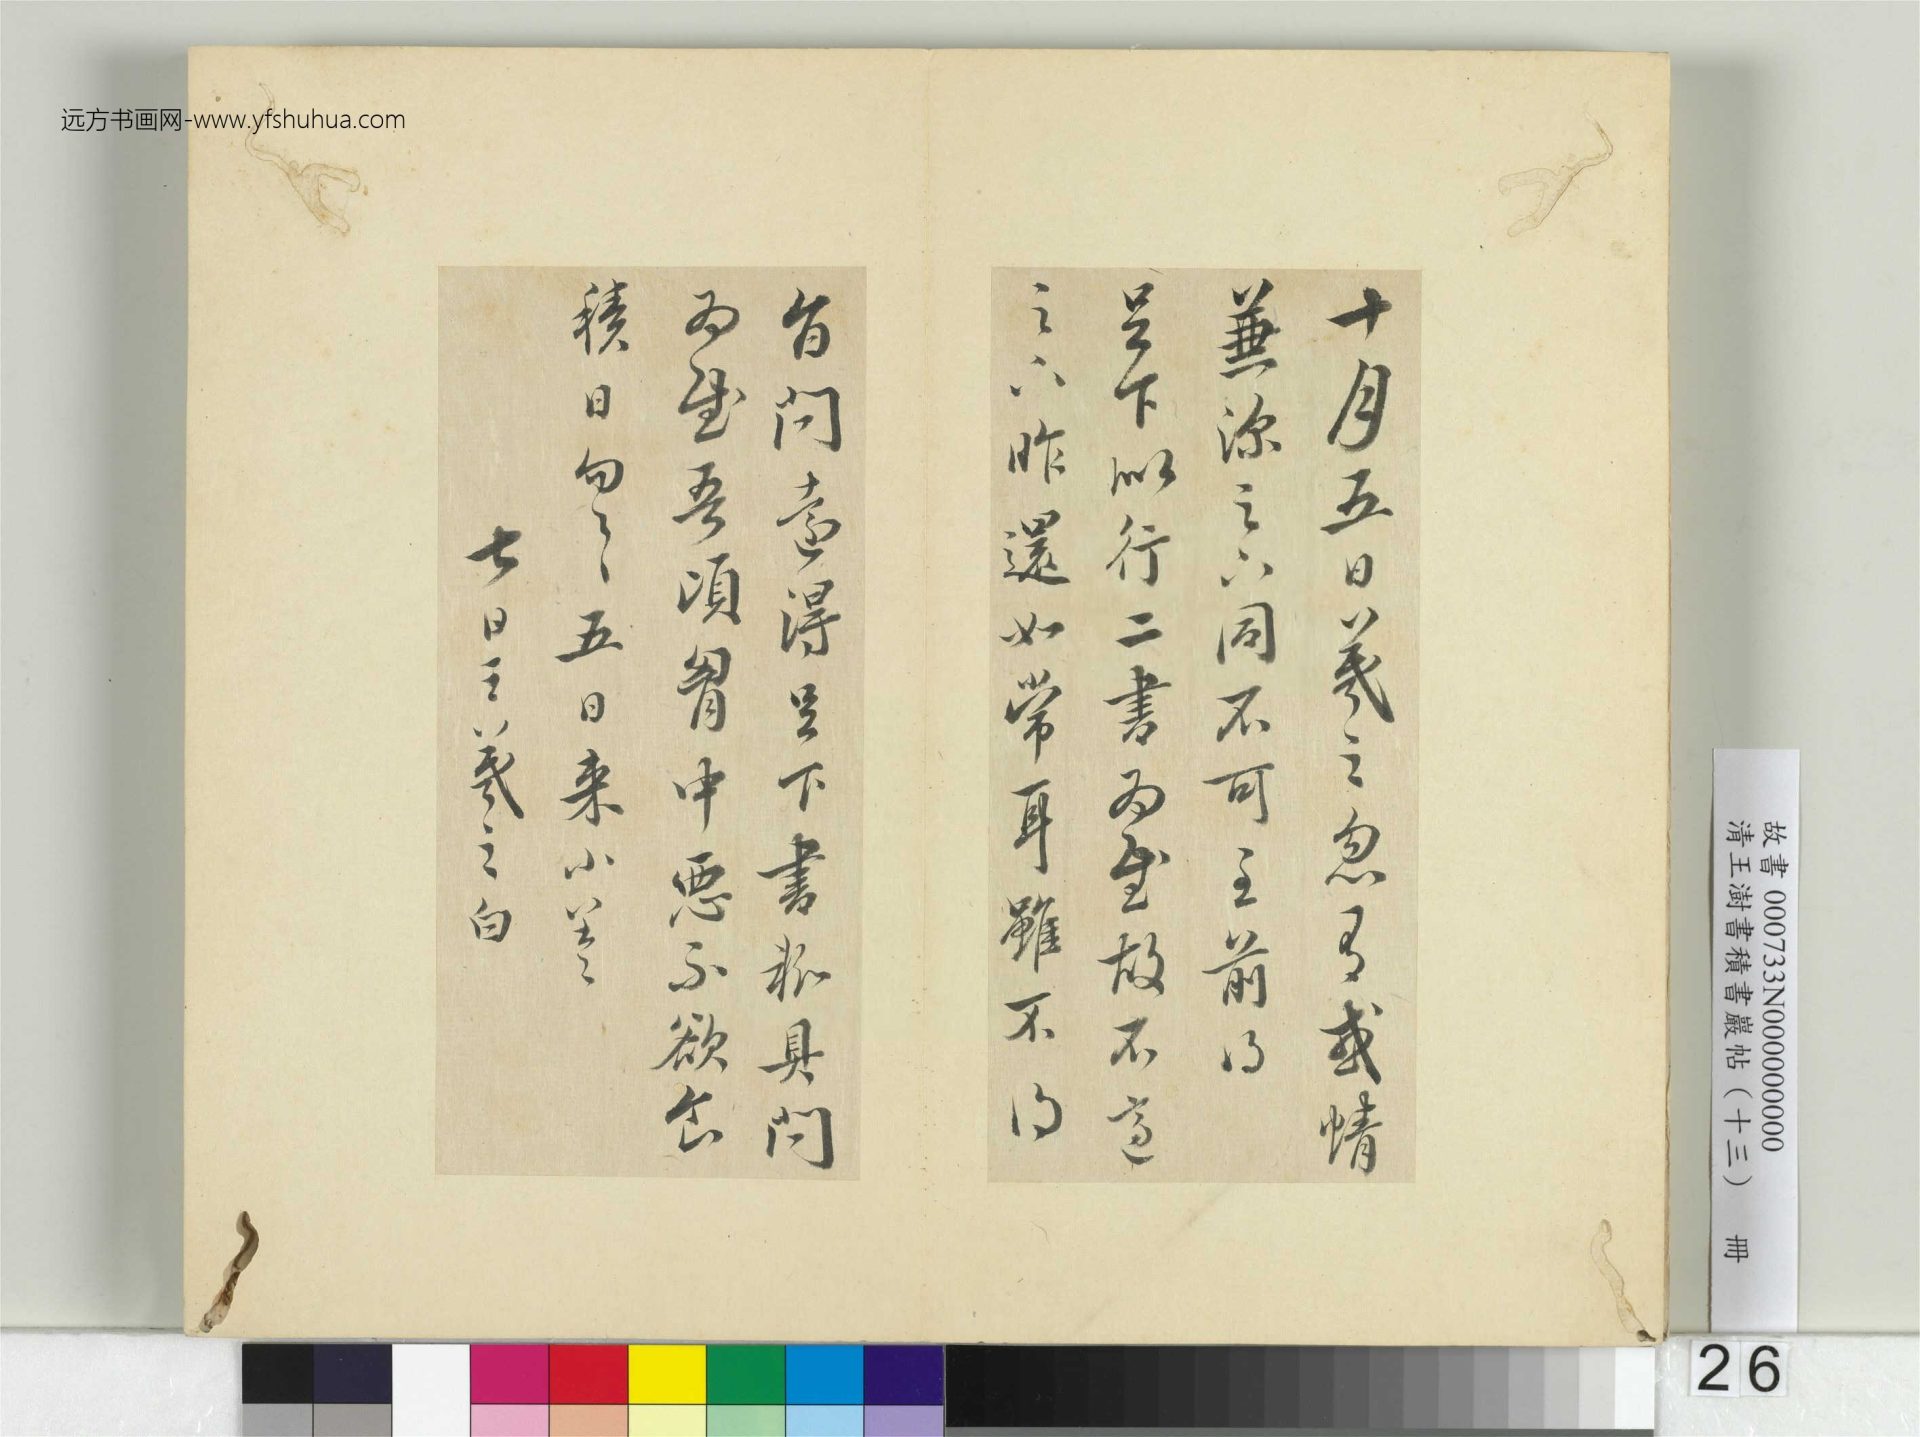 十月五日羲之忽有感情
兼深之亦同不可言前得
足下以行二書為慰故不適
之亦昨還如常耳雖不得
旨問遠得足下書粗具問
為慰吾頃胷中惡不欲食
積日匆匆五日来小差
七日王羲之白
远方书画网-www.yfshuhua.com
故書 000733N000000000
清王澍書積書巖帖（十三） 冊
26